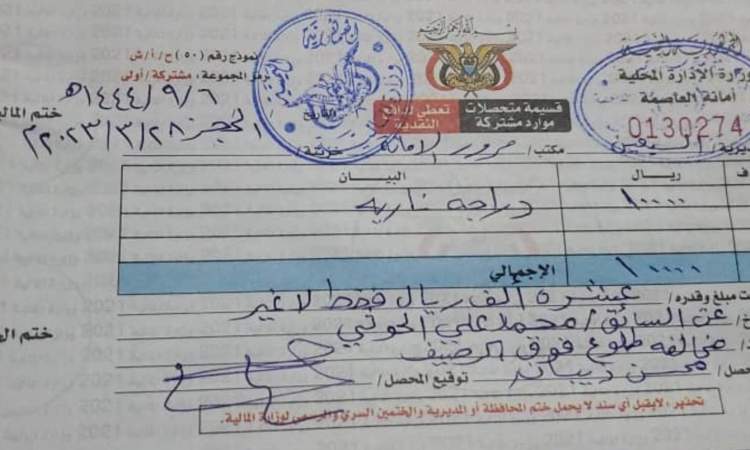 بسم الله الرحمن الرحيم
نموذج رقم (٥٠) ح/أ/ش
رمز المجموعة: مشتركة/أولى
وزارة الإدارة المحلية
أمانة العاصمة
١٤٤٤/٩/٦هـ
ختم المالي
قسيمة متحصلات موارد مشتركة
تعطى للدافع النقدية
0130274
التاريخ
٢٠٢٣/٣/٢٨م
مكتب/ مرور الامانة
خزينة/
ف ريال البيان
١٠٠٠٠ دراجه ناريه
١٠٠٠٠ الإجمالي
مبلغ وقدره/ عشرة ألف ريال فقط لا غير
عن السائق/ محمد علي الحوثي
مخالفه طلوع فوق الرصيف
توقيع المحصل/
تحذير، لايقبل أي سند لا يحمل ختم المحافظة أو المديرية والختمين السري والرسمي لوزارة المالية.